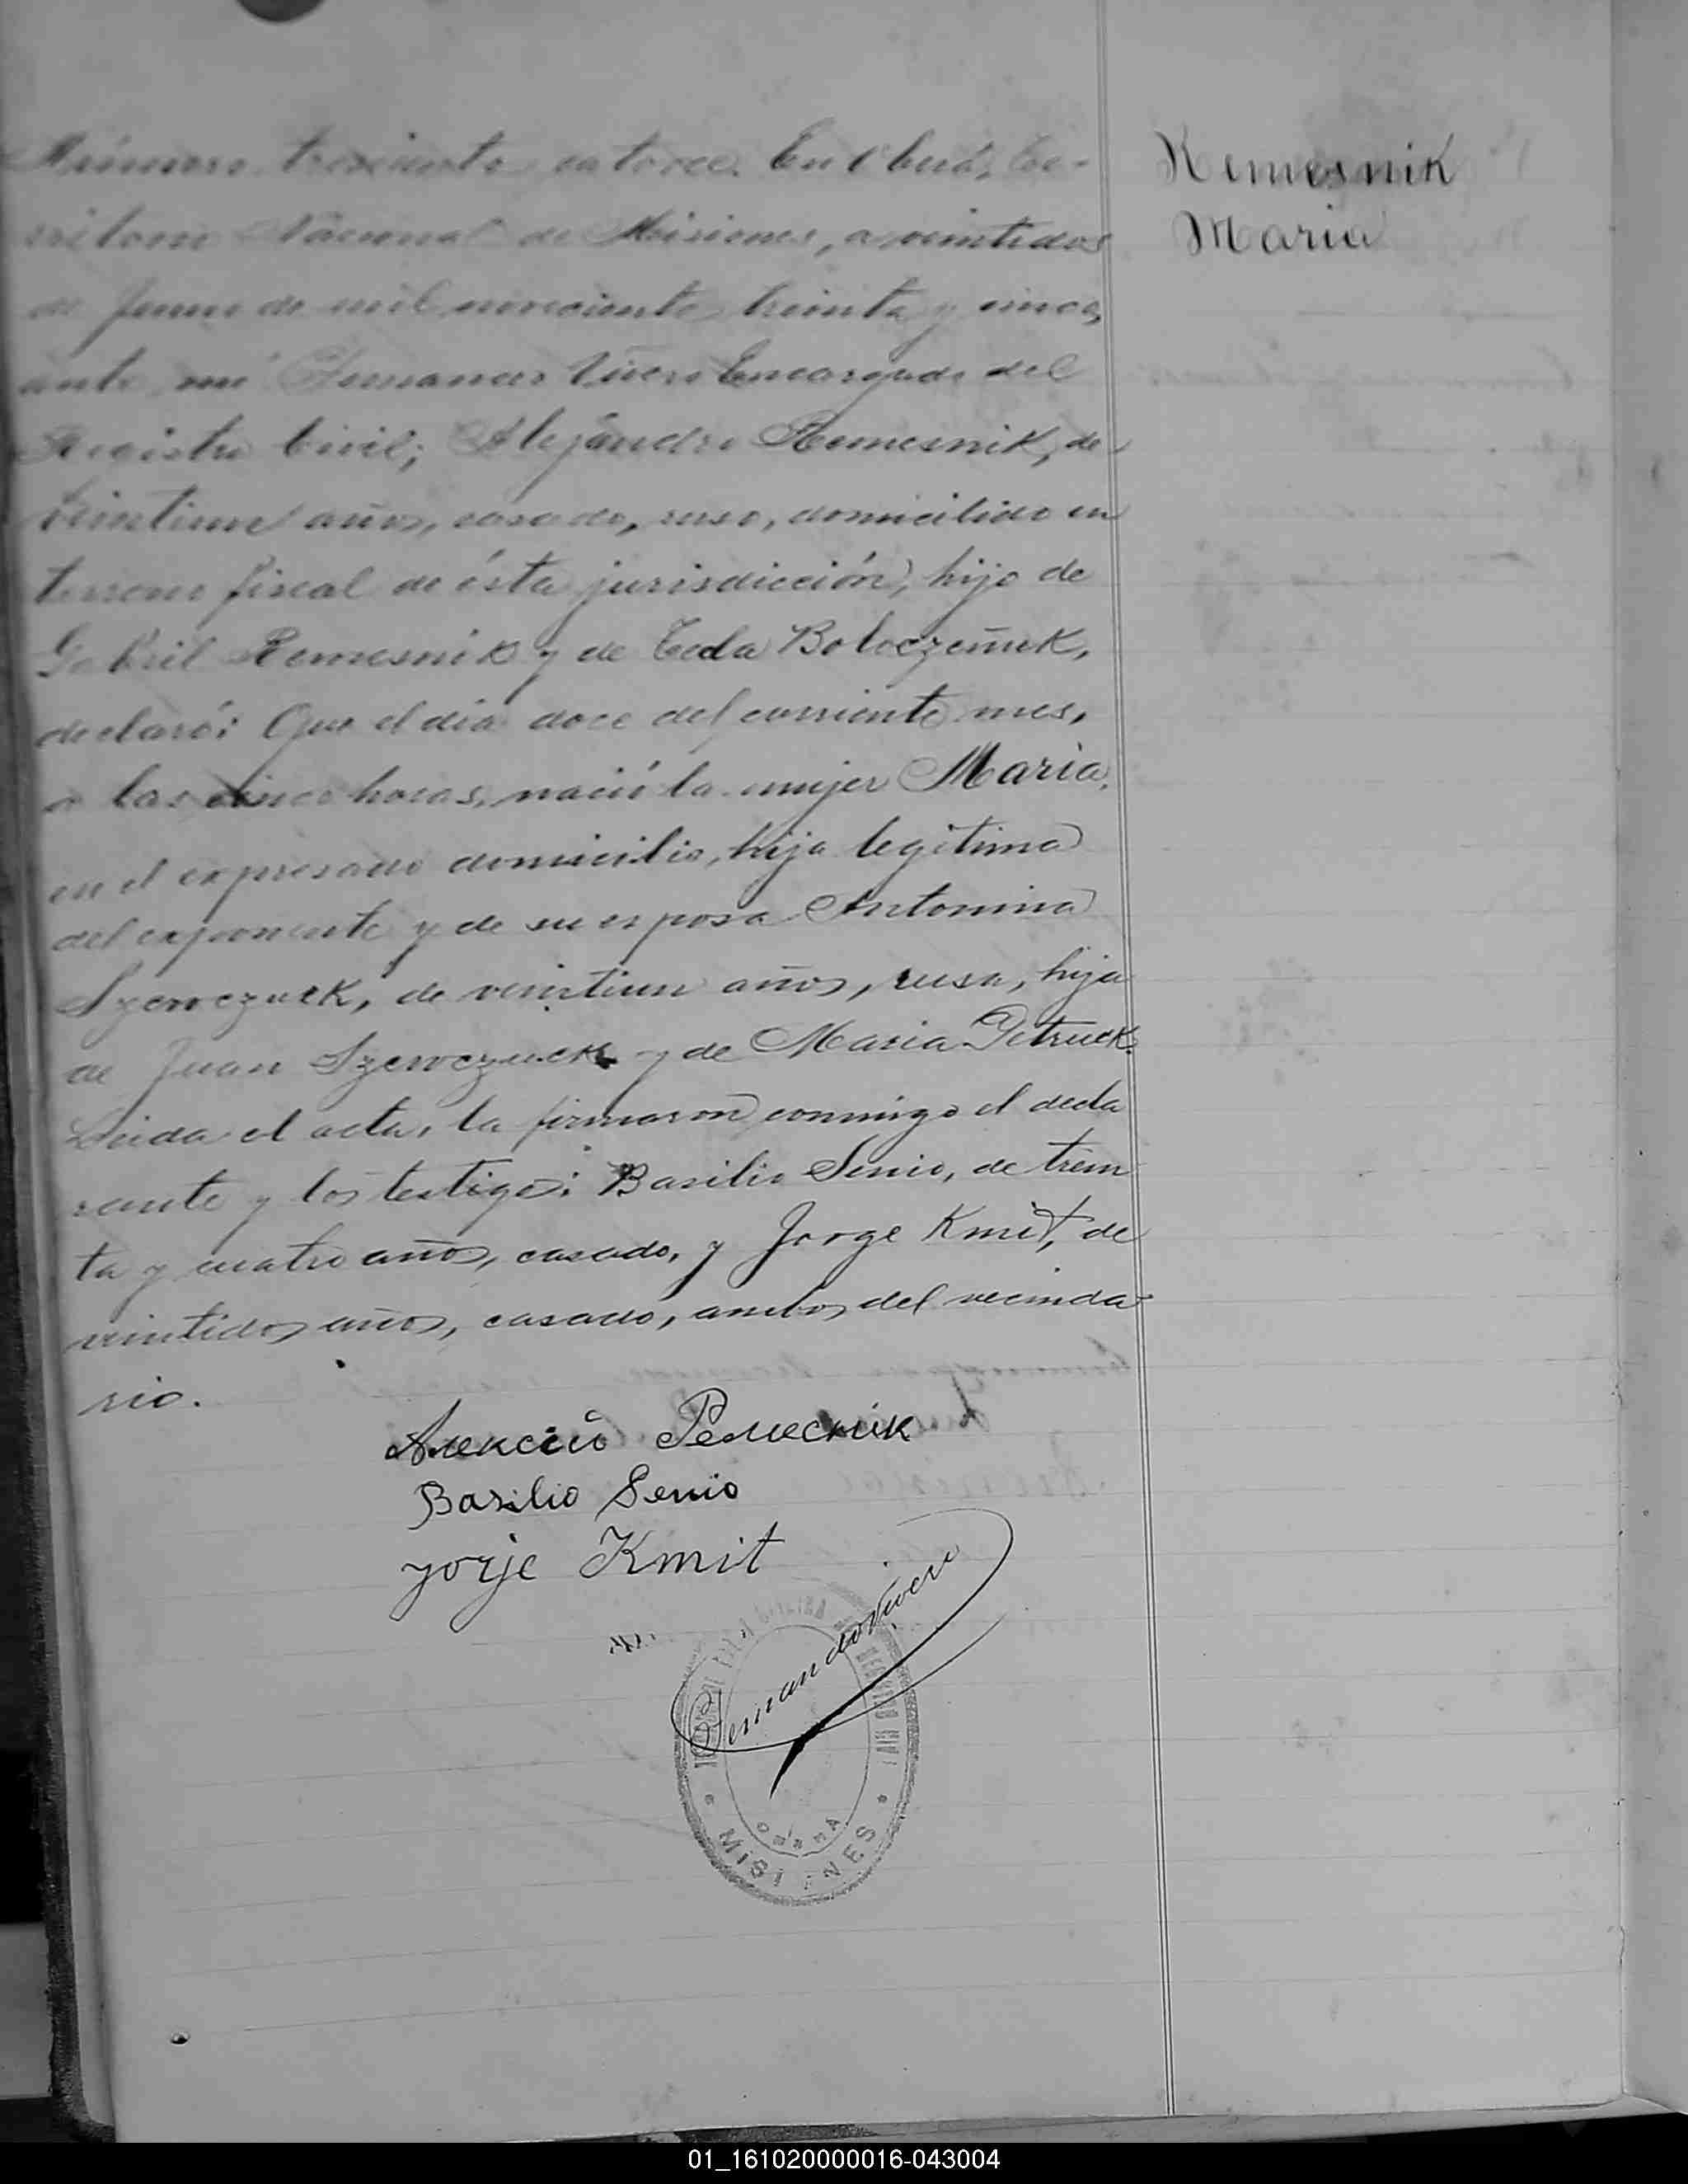 Número trescientos catorce. En Oberá, Te-
rritorio Nacional de Misiones, a veintidos
de Junio de mil novecientos treinta y cinco,
ante mi Fernando Vivero Encargado del
Registro Civil; Alejandro Remesnik, de
veintiun años, casado, ruso, domicilido en
terreno fiscal de ésta jurisdicción, hijo de
Gabril Remesnik y de Teda Boloczeñuk,
declaró: Que el día doce del corriente mes,
a las cinco horas, nació la mujer Maria,
en el expresado domicilio, hija legitima
del exponente y de su esposa Antonina
Szewczuck, de veintiun años, rusa, hija
de Juan Szewczuck y de Maria Petruck.
Leida el acta, la firmaron conmigo el decla
rante y los testigos: Basilio Senio, de trein
ta y cuatro años, casado, y Jorge Kmit, de
veintidos años, casado, ambos del vecinda-
rio.
Remesnik
Maria
Алексій Ремесник
Basilio Senio
yorje Kmit
Fernando Vivero
REGISTRO CIVIL
OBERA
MISIONES
01_161020000016-043004